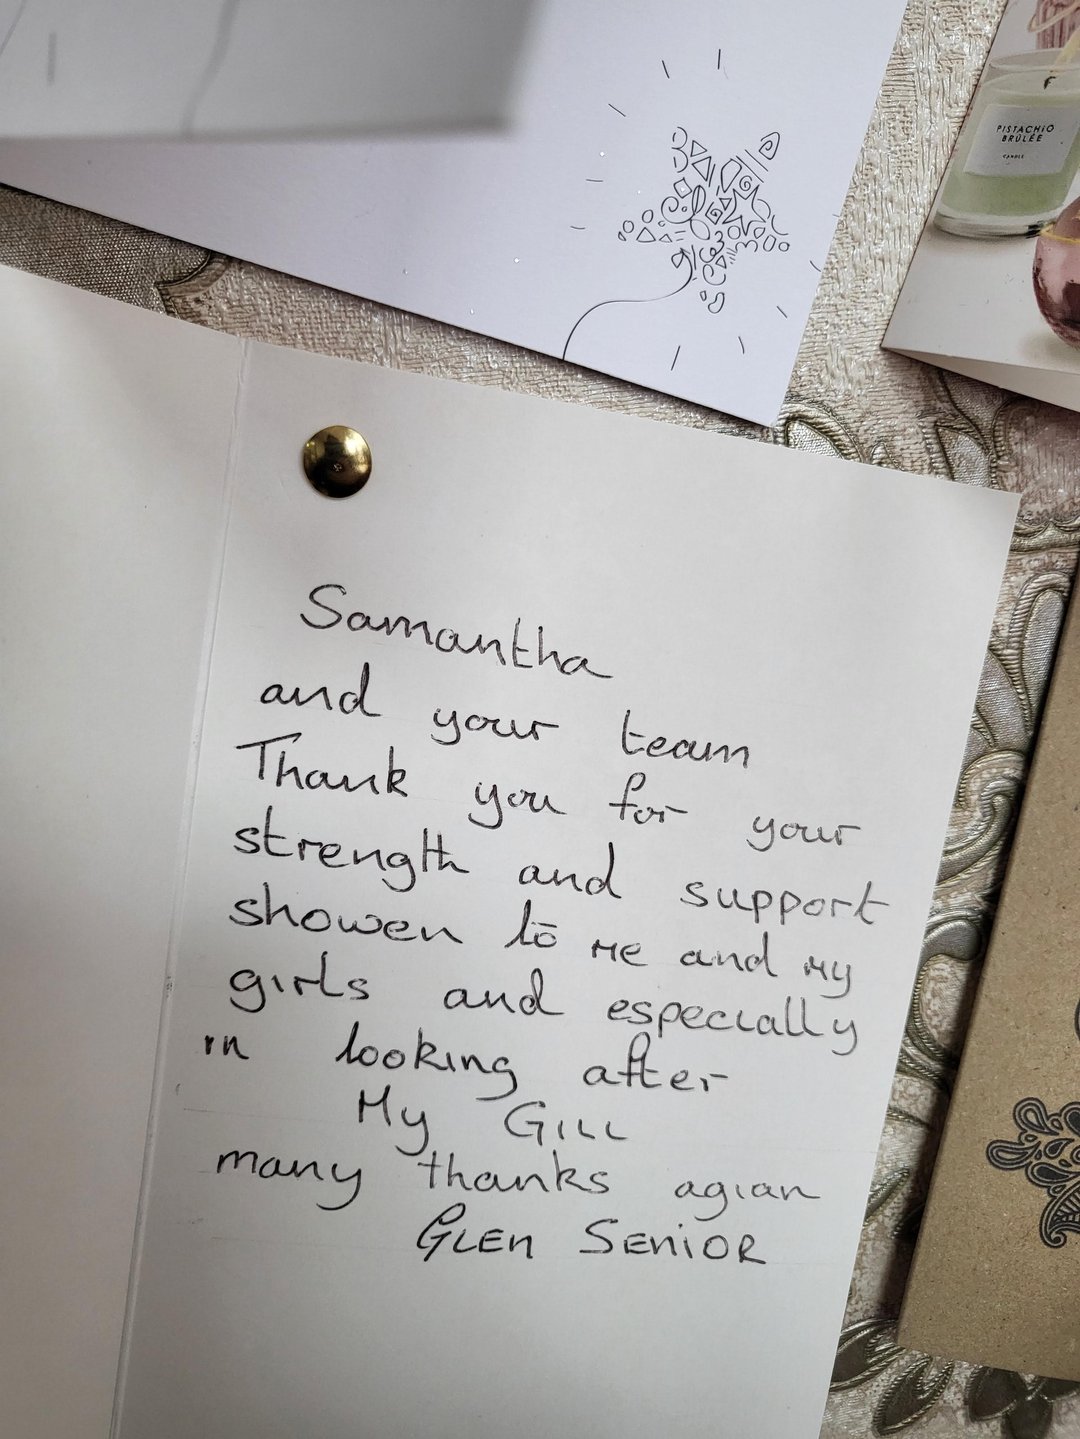 PISTACHIO
BRÛLÉE
CANDLE
Samantha
and your team
Thank you for your
strength and support
showen to me and my
girls and especially
in looking after
My GILL
many thanks agian
GLEN SENIOR